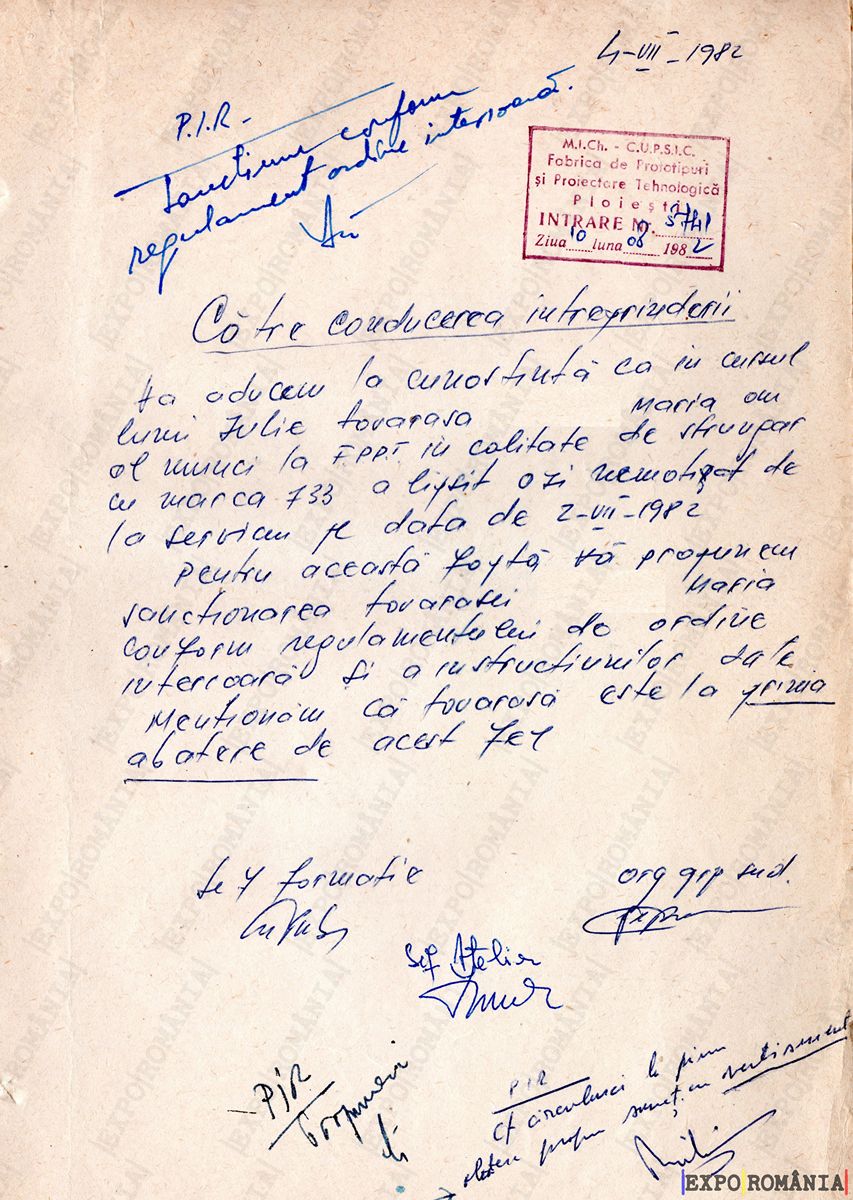 4-VII-1982
P.I.R-
Sancțiune conform
regulament ordine interioară.
M.I.Ch. - C.U.P.S.I.C.
Fabrica de Prototipuri
și Proiectare Tehnologică
Ploiești
INTRARE Nr. 5741
Ziua 10 luna 08 1982
Către conducerea intreprinderii
Va aducem la cunostintă ca in cursul
lunii Iulie tovarasa Maria om
al munci la FPPT in calitate de strungar
cu marca 733 a lipsit o zi nemotivat de
la serviciu pe data de 2-VII-1982
Pentru această faptă vă propunem
sanctionarea tovarasei Maria
conform regulamentului de ordine
interioară si a instructiunilor date
Mentionăm că tovarasa este la prima
abatere de acest fel
Sef formatie
org grp sind.
Sef Atelier
PIR
Propuneri
PIR
Cf circularei la prima
abatere propun sancț. cu avertisment
EXPO ROMÂNIA